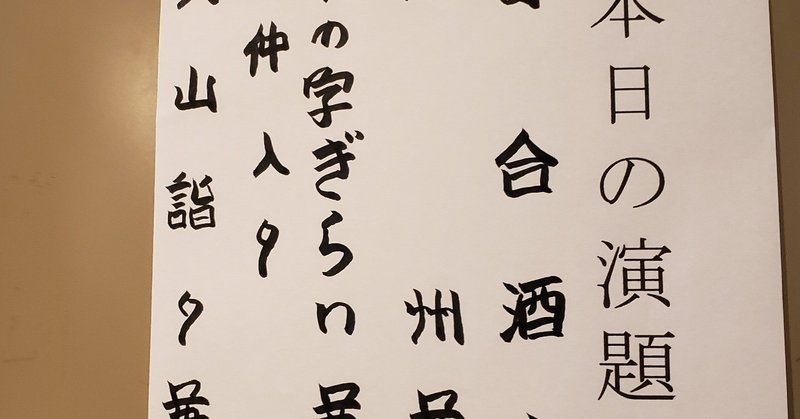 本日の演題
合酒
州
の字ぎらい
仲入り
山詣り